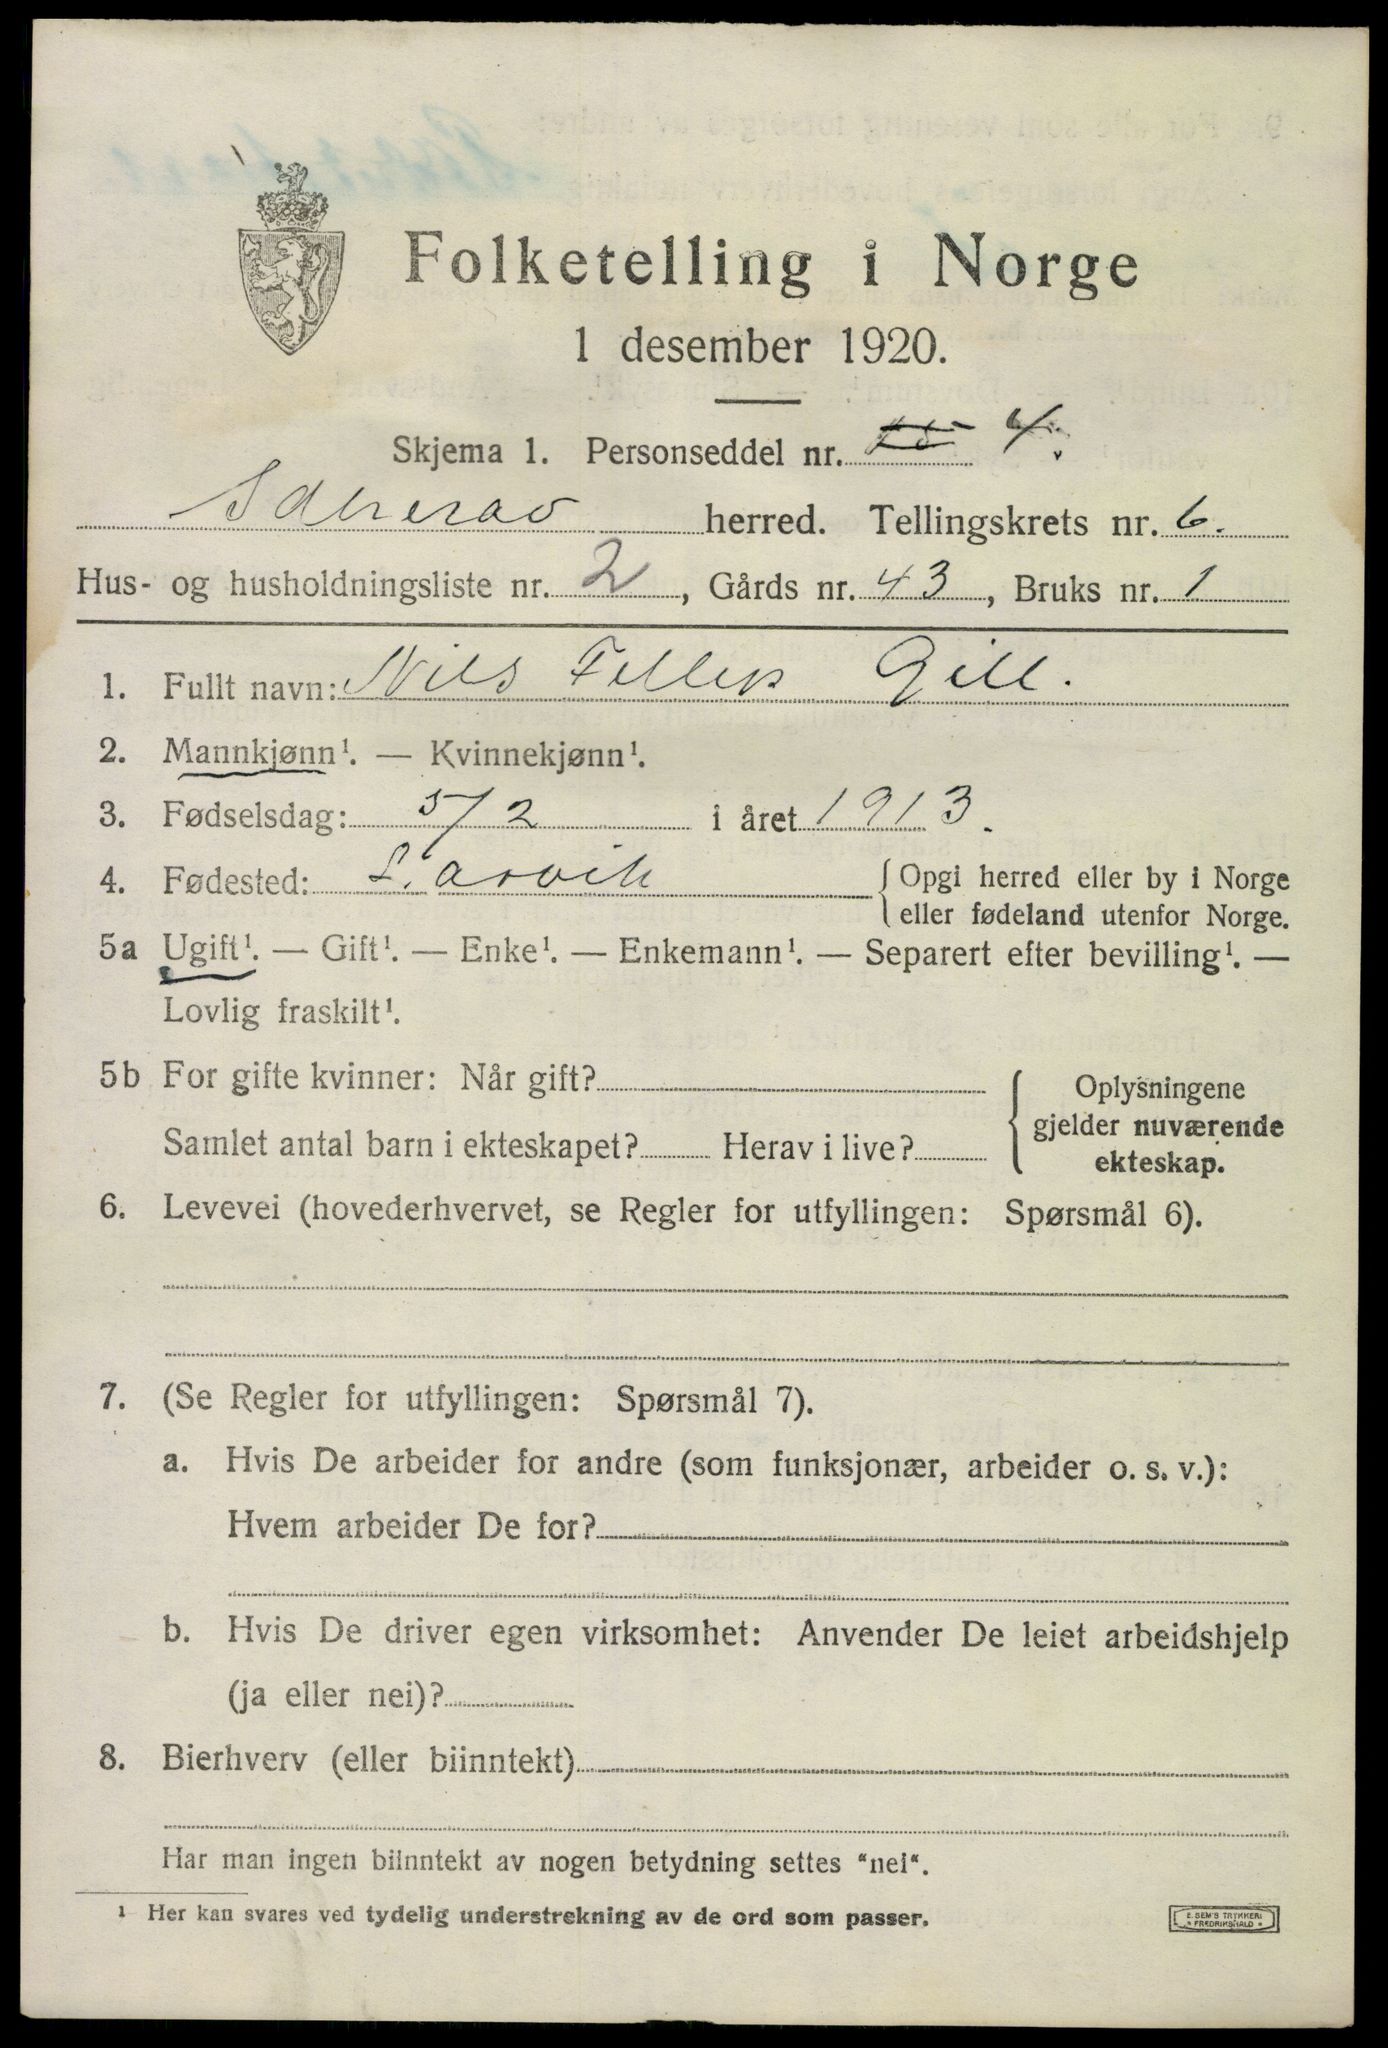 Folketelling i Norge
1 desember 1920.
Skjema 1. Personseddel nr. 4.
herred. Tellingskrets nr. 6.
Hus- og husholdningsliste nr. 2, Gårds nr. 43, Bruks nr. 1
1. Fullt navn: Nils Gill.
2. Mannkjønn¹. — Kvinnekjønn¹.
3. Fødselsdag: 5/2 i året 1913.
4. Fødested: Larvik { Opgi herred eller by i Norge
eller fødeland utenfor Norge.
5a Ugift¹. — Gift¹. — Enke¹. — Enkemann¹. — Separert efter bevilling¹. —
Lovlig fraskilt¹.
5b For gifte kvinner: Når gift? { Oplysningene
gjelder nuværende
Samlet antal barn i ekteskapet? Herav i live?
ekteskap.
6. Levevei (hovederhvervet, se Regler for utfyllingen: Spørsmål 6).
7. (Se Regler for utfyllingen: Spørsmål 7).
a. Hvis De arbeider for andre (som funksjonær, arbeider o. s. v.):
Hvem arbeider De for?
b. Hvis De driver egen virksomhet: Anvender De leiet arbeidshjelp
(ja eller nei)?
8. Bierhverv (eller biinntekt)
Har man ingen biinntekt av nogen betydning settes "nei".
¹ Her kan svares ved tydelig understrekning av de ord som passer.
E. SEM'S TRYKKERI
FREDRIKSHALD